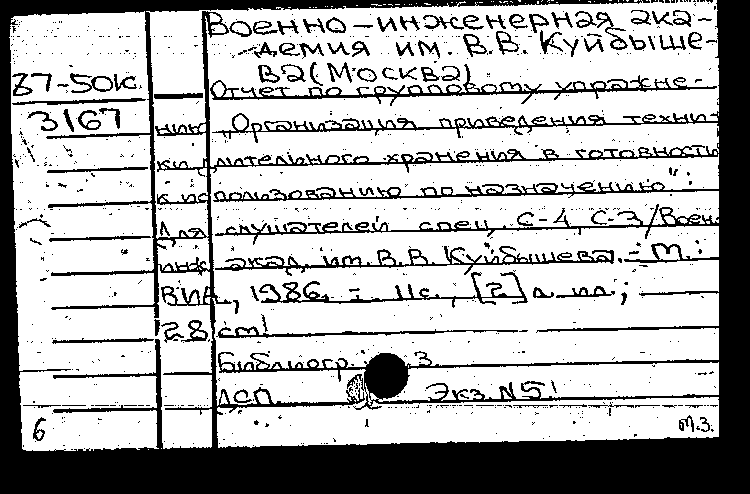 Военно-инженерная ака-
демия им. В.В. Куйбыше-
ва (Москва)
87-50к
Отчет по групповому упражне-
3167
нию „Организация приведения техни-
ки длительного хранения в готовность
к использованию по назначению":
Для слушателей спец. С-4, С-3/Воен.-
инж. акад. им. В.В. Куйбышева. - М.:
ВИА, 1986. - 11с., [2] л. ил.;
28 cm!
Библиогр.: 3
ДСП. Экз. N5!
6
М.З.